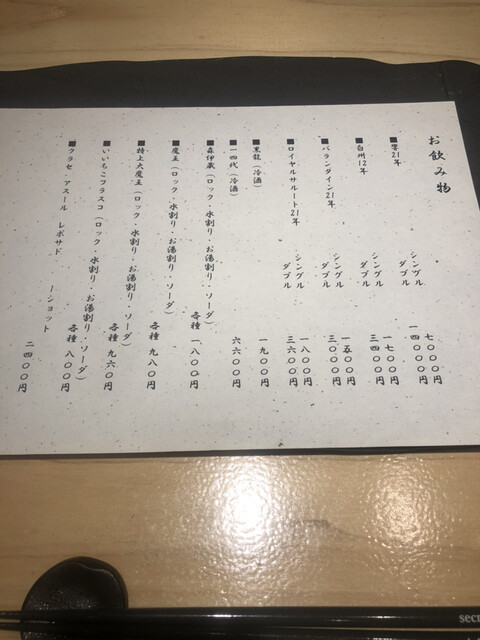 お飲み物
■響21年
シングル 七〇〇〇円
ダブル 一四〇〇〇円
■白州12年
シングル 一七〇〇円
ダブル 三四〇〇円
■バランタイン21年
シングル 一五〇〇円
ダブル 三〇〇〇円
■ロイヤルサルート21年
シングル 一八〇〇円
ダブル 三六〇〇円
■黒龍(冷酒) 一九〇〇円
■十四代(冷酒) 六六〇〇円
■森伊蔵(ロック・水割り・お湯割り・ソーダ)
各種 一八〇〇円
■魔王(ロック・水割り・お湯割り・ソーダ)
各種 九八〇円
■特上大魔王(ロック・水割り・お湯割り・ソーダ)
各種 九六〇円
■いいちこフラスコ(ロック・水割り・お湯割り・ソーダ)
各種 八〇〇円
■クラセ・アスール レポサド 一ショット
二四〇〇円